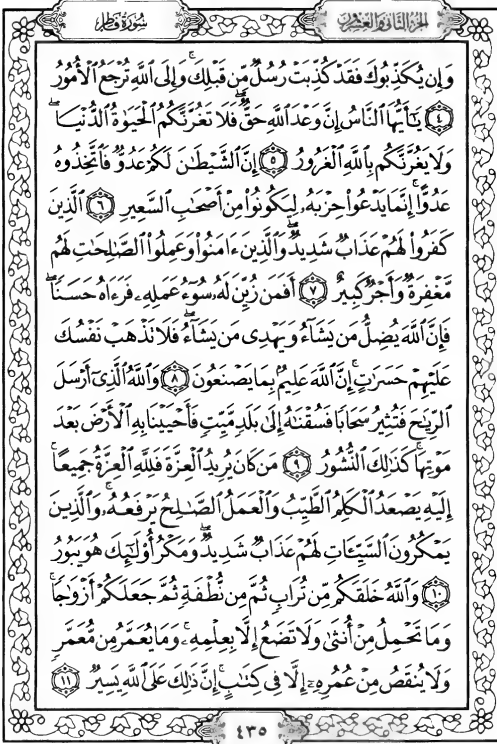 الجزء الثاني والعشرين
سورة فاطر
وَإِن يُكَذِّبُوكَ فَقَدْ كُذِّبَتْ رُسُلٌ مِّن قَبْلِكَ ۚ وَإِلَى ٱللَّهِ تُرْجَعُ ٱلْأُمُورُ
﴿٤﴾ يَـٰٓأَيُّهَا ٱلنَّاسُ إِنَّ وَعْدَ ٱللَّهِ حَقٌّ ۖ فَلَا تَغُرَّنَّكُمُ ٱلْحَيَوٰةُ ٱلدُّنْيَا ۖ
وَلَا يَغُرَّنَّكُم بِٱللَّهِ ٱلْغَرُورُ ﴿٥﴾ إِنَّ ٱلشَّيْطَـٰنَ لَكُمْ عَدُوٌّ فَٱتَّخِذُوهُ
عَدُوًّا ۚ إِنَّمَا يَدْعُوا۟ حِزْبَهُۥ لِيَكُونُوا۟ مِنْ أَصْحَـٰبِ ٱلسَّعِيرِ ﴿٦﴾ ٱلَّذِينَ
كَفَرُوا۟ لَهُمْ عَذَابٌ شَدِيدٌ ۖ وَٱلَّذِينَ ءَامَنُوا۟ وَعَمِلُوا۟ ٱلصَّـٰلِحَـٰتِ لَهُم
مَّغْفِرَةٌ وَأَجْرٌ كَبِيرٌ ﴿٧﴾ أَفَمَن زُيِّنَ لَهُۥ سُوٓءُ عَمَلِهِۦ فَرَءَاهُ حَسَنًا ۖ
فَإِنَّ ٱللَّهَ يُضِلُّ مَن يَشَآءُ وَيَهْدِى مَن يَشَآءُ ۖ فَلَا تَذْهَبْ نَفْسُكَ
عَلَيْهِمْ حَسَرَٰتٍ ۚ إِنَّ ٱللَّهَ عَلِيمٌۢ بِمَا يَصْنَعُونَ ﴿٨﴾ وَٱللَّهُ ٱلَّذِىٓ أَرْسَلَ
ٱلرِّيَـٰحَ فَتُثِيرُ سَحَابًا فَسُقْنَـٰهُ إِلَىٰ بَلَدٍ مَّيِّتٍ فَأَحْيَيْنَا بِهِ ٱلْأَرْضَ بَعْدَ
مَوْتِهَا ۚ كَذَٰلِكَ ٱلنُّشُورُ ﴿٩﴾ مَن كَانَ يُرِيدُ ٱلْعِزَّةَ فَلِلَّهِ ٱلْعِزَّةُ جَمِيعًا ۚ
إِلَيْهِ يَصْعَدُ ٱلْكَلِمُ ٱلطَّيِّبُ وَٱلْعَمَلُ ٱلصَّـٰلِحُ يَرْفَعُهُۥ ۚ وَٱلَّذِينَ
يَمْكُرُونَ ٱلسَّيِّـَٔاتِ لَهُمْ عَذَابٌ شَدِيدٌ ۖ وَمَكْرُ أُو۟لَـٰٓئِكَ هُوَ يَبُورُ
﴿١٠﴾ وَٱللَّهُ خَلَقَكُم مِّن تُرَابٍ ثُمَّ مِن نُّطْفَةٍ ثُمَّ جَعَلَكُمْ أَزْوَٰجًا ۚ
وَمَا تَحْمِلُ مِنْ أُنثَىٰ وَلَا تَضَعُ إِلَّا بِعِلْمِهِۦ ۚ وَمَا يُعَمَّرُ مِن مُّعَمَّرٍ
وَلَا يُنقَصُ مِنْ عُمُرِهِۦٓ إِلَّا فِى كِتَـٰبٍ ۚ إِنَّ ذَٰلِكَ عَلَى ٱللَّهِ يَسِيرٌ ﴿١١﴾
٤٣٥